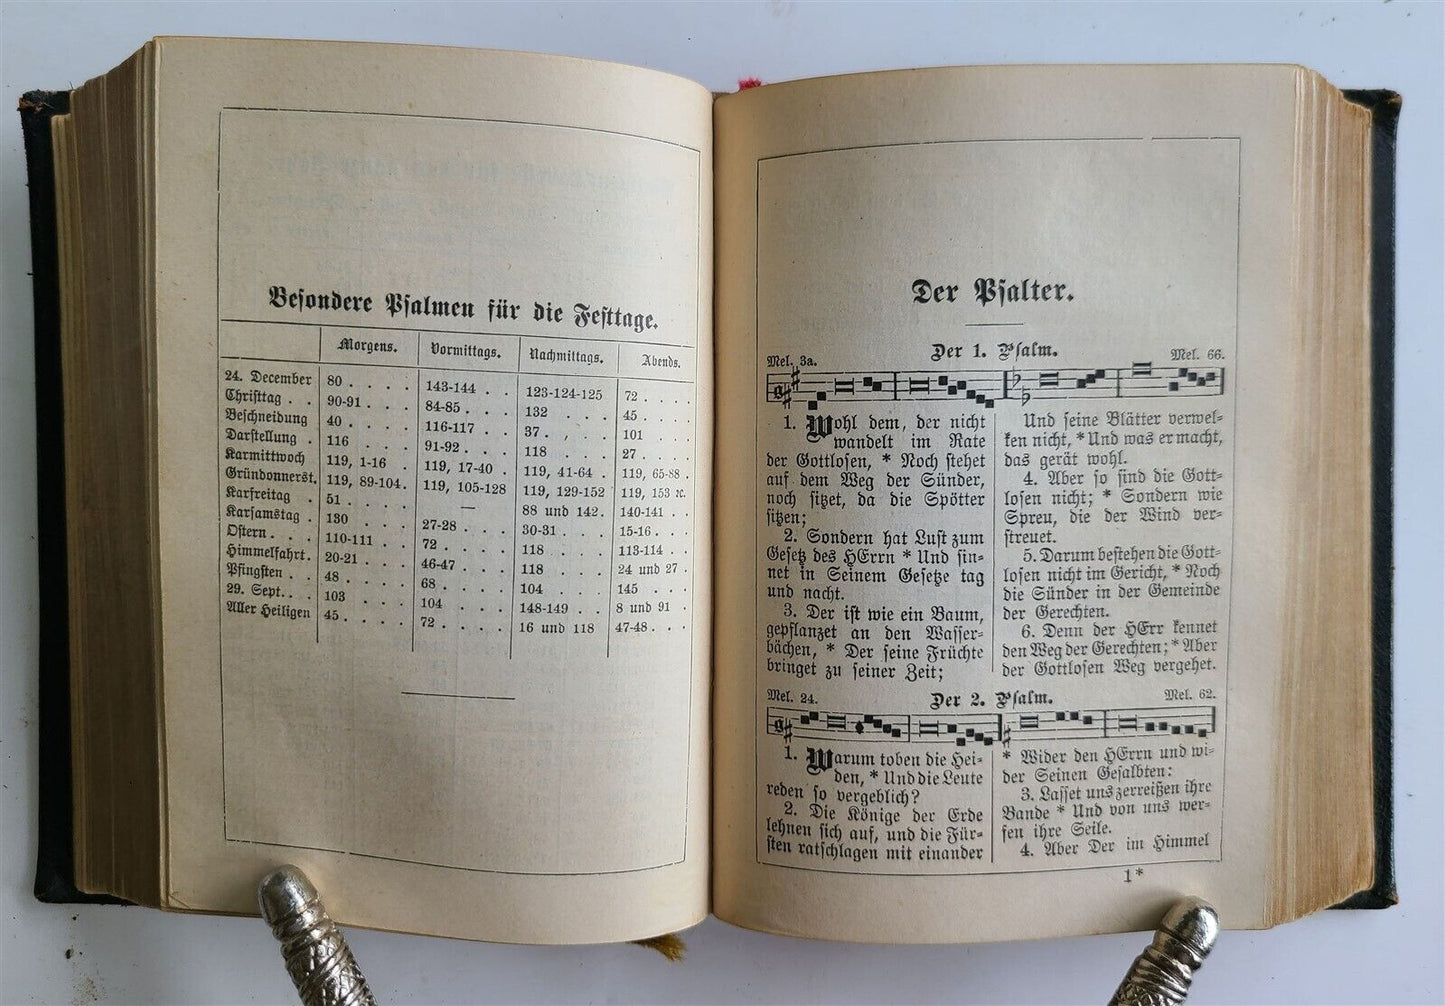 Besondere Psalmen für die Festtage.
Morgens. Vormittags. Nachmittags. Abends.
24. December 80 . . . . 143-144 . . 123-124-125 72 . . . .
Christtag . . 90-91 . . . 84-85 . . . 132 . . . 45 . . .
Beschneidung 40 . . . . 116-117 . . 37 . . . 101 . . .
Darstellung . 116 . . . 91-92 . . . 118 . . . 27 . . .
Karmittwoch 119, 1-16 . 119, 17-40 . 119, 41-64 . 119, 65-88 .
Gründonnerst. 119, 89-104. 119, 105-128 119, 129-152 119, 153 ꝛc.
Karfreitag . 51 . . . . — 88 und 142. 140-141 . .
Karsamstag . 130 . . . 27-28 . . . 30-31 . . . 15-16 . . .
Ostern . . . 110-111 . . 72 . . . . 118 . . . 113-114 . .
Himmelfahrt. 20-21 . . . 46-47 . . . 118 . . . 24 und 27 .
Pfingsten . . 48 . . . . 68 . . . . 104 . . . 145 . . .
29. Sept. . . 103 . . . 104 . . . 148-149 . . 8 und 91 .
Aller Heiligen 45 . . . . 72 . . . . 16 und 118 47-48 . . .
Der Psalter.
Mel. 3a. Der 1. Psalm. Mel. 66.
1. Wohl dem, der nicht
wandelt im Rate
der Gottlosen, * Noch stehet
auf dem Weg der Sünder,
noch sitzet, da die Spötter
sitzen;
2. Sondern hat Lust zum
Gesetz des HErrn * Und sin-
net in Seinem Gesetze tag
und nacht.
3. Der ist wie ein Baum,
gepflanzet an den Wasser-
bächen, * Der seine Früchte
bringet zu seiner Zeit;
Und seine Blätter verwel-
ken nicht, * Und was er macht,
das gerät wohl.
4. Aber so sind die Gott-
losen nicht; * Sondern wie
Spreu, die der Wind ver-
streuet.
5. Darum bestehen die Gott-
losen nicht im Gericht, * Noch
die Sünder in der Gemeinde
der Gerechten.
6. Denn der HErr kennet
den Weg der Gerechten; * Aber
der Gottlosen Weg vergehet.
Mel. 24. Der 2. Psalm. Mel. 62.
1. Warum toben die Hei-
den, * Und die Leute
reden so vergeblich?
2. Die Könige der Erde
lehnen sich auf, und die Für-
sten ratschlagen mit einander
* Wider den HErrn und wi-
der Seinen Gesalbten:
3. Lasset uns zerreißen ihre
Bande * Und von uns wer-
fen ihre Seile.
4. Aber Der im Himmel
1*